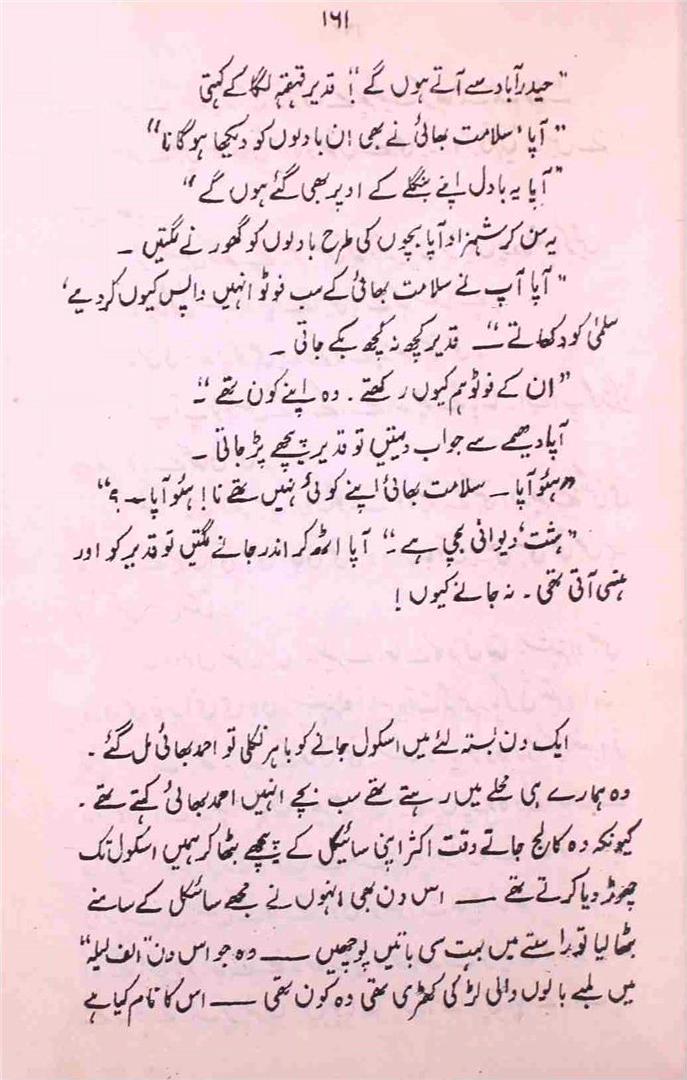 ۱۶۱
"حیدرآباد سے آتے ہوں گے"! قدیر قہقہہ لگا کے کہتی
"آپا، سلامت بھائی نے بھی ان بادلوں کو دیکھا ہوگا نا"
"آپا یہ بادل اپنے بنگلے کے اوپر بھی گئے ہوں گے"
یہ سن کر شہزاد آپا بچوں کی طرح بادلوں کو گھورنے لگتیں ۔
"آپا آپ نے سلامت بھائی کے سب فوٹو انہیں واپس کیوں کر دیے،
سلمیٰ کو دکھاتے ـــ" قدیر کچھ نہ کچھ بکے جاتی ۔
"ان کے فوٹو ہم کیوں رکھتے ۔ وہ اپنے کون تھے ـ"
آپا دھیمے سے جواب دیتیں تو قدیر پیچھے پڑ جاتی ۔
"ہئو آپا ـ سلامت بھائی اپنے کوئی نہیں تھے نا! ہئو آپا ـ ؟"
"ہشت، دیوانی بچی ہے ـ" آپا اٹھ کر اندر جانے لگتیں تو قدیر کو اور
ہنسی آتی تھی ۔ نہ جانے کیوں!
ایک دن بستہ لئے میں اسکول جانے کو باہر نکلی تو احمد بھائی مل گئے ۔
وہ ہمارے ہی محلے میں رہتے تھے سب بچے انہیں احمد بھائی کہتے تھے ۔
کیونکہ وہ کالج جاتے وقت اکثر اپنی سائیکل کے پیچھے بٹھا کر ہمیں اسکول تک
چھوڑ دیا کرتے تھے ـــ اس دن بھی انہوں نے مجھے سائکل کے سامنے
بٹھا لیا تو راستے میں بہت سی باتیں پوچھیں ـــ وہ جو اس دن "الف لیلہ"
میں لمبے بالوں والی لڑکی کھڑی تھی وہ کون تھی ـــ اس کا نام کیا ہے